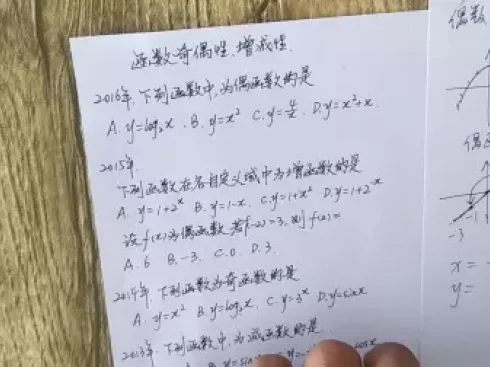 函数奇偶性、增减性.
2016年,下列函数中,为偶函数的是
A. y=log₂x. B. y=x² C. y=4/x. D. y=x²+x.
2015年.
下列函数在各自定义域中为增函数的是
A. y=1+2ˣ B. y=1-x. C. y=1+x² D. y=1+2⁻ˣ
设f(x)为偶函数,若f(-2)=3,则f(2)=
A. 6 B. -3. C. 0 D. 3.
2014年,下列函数为奇函数的是
A. y=x² B. y=log₂x. C. y=3ˣ D. y=sinx
2013年,下列函数中,为减函数的是.
B. y=sin
cosx
偶函数
-3 -1
x =
y =